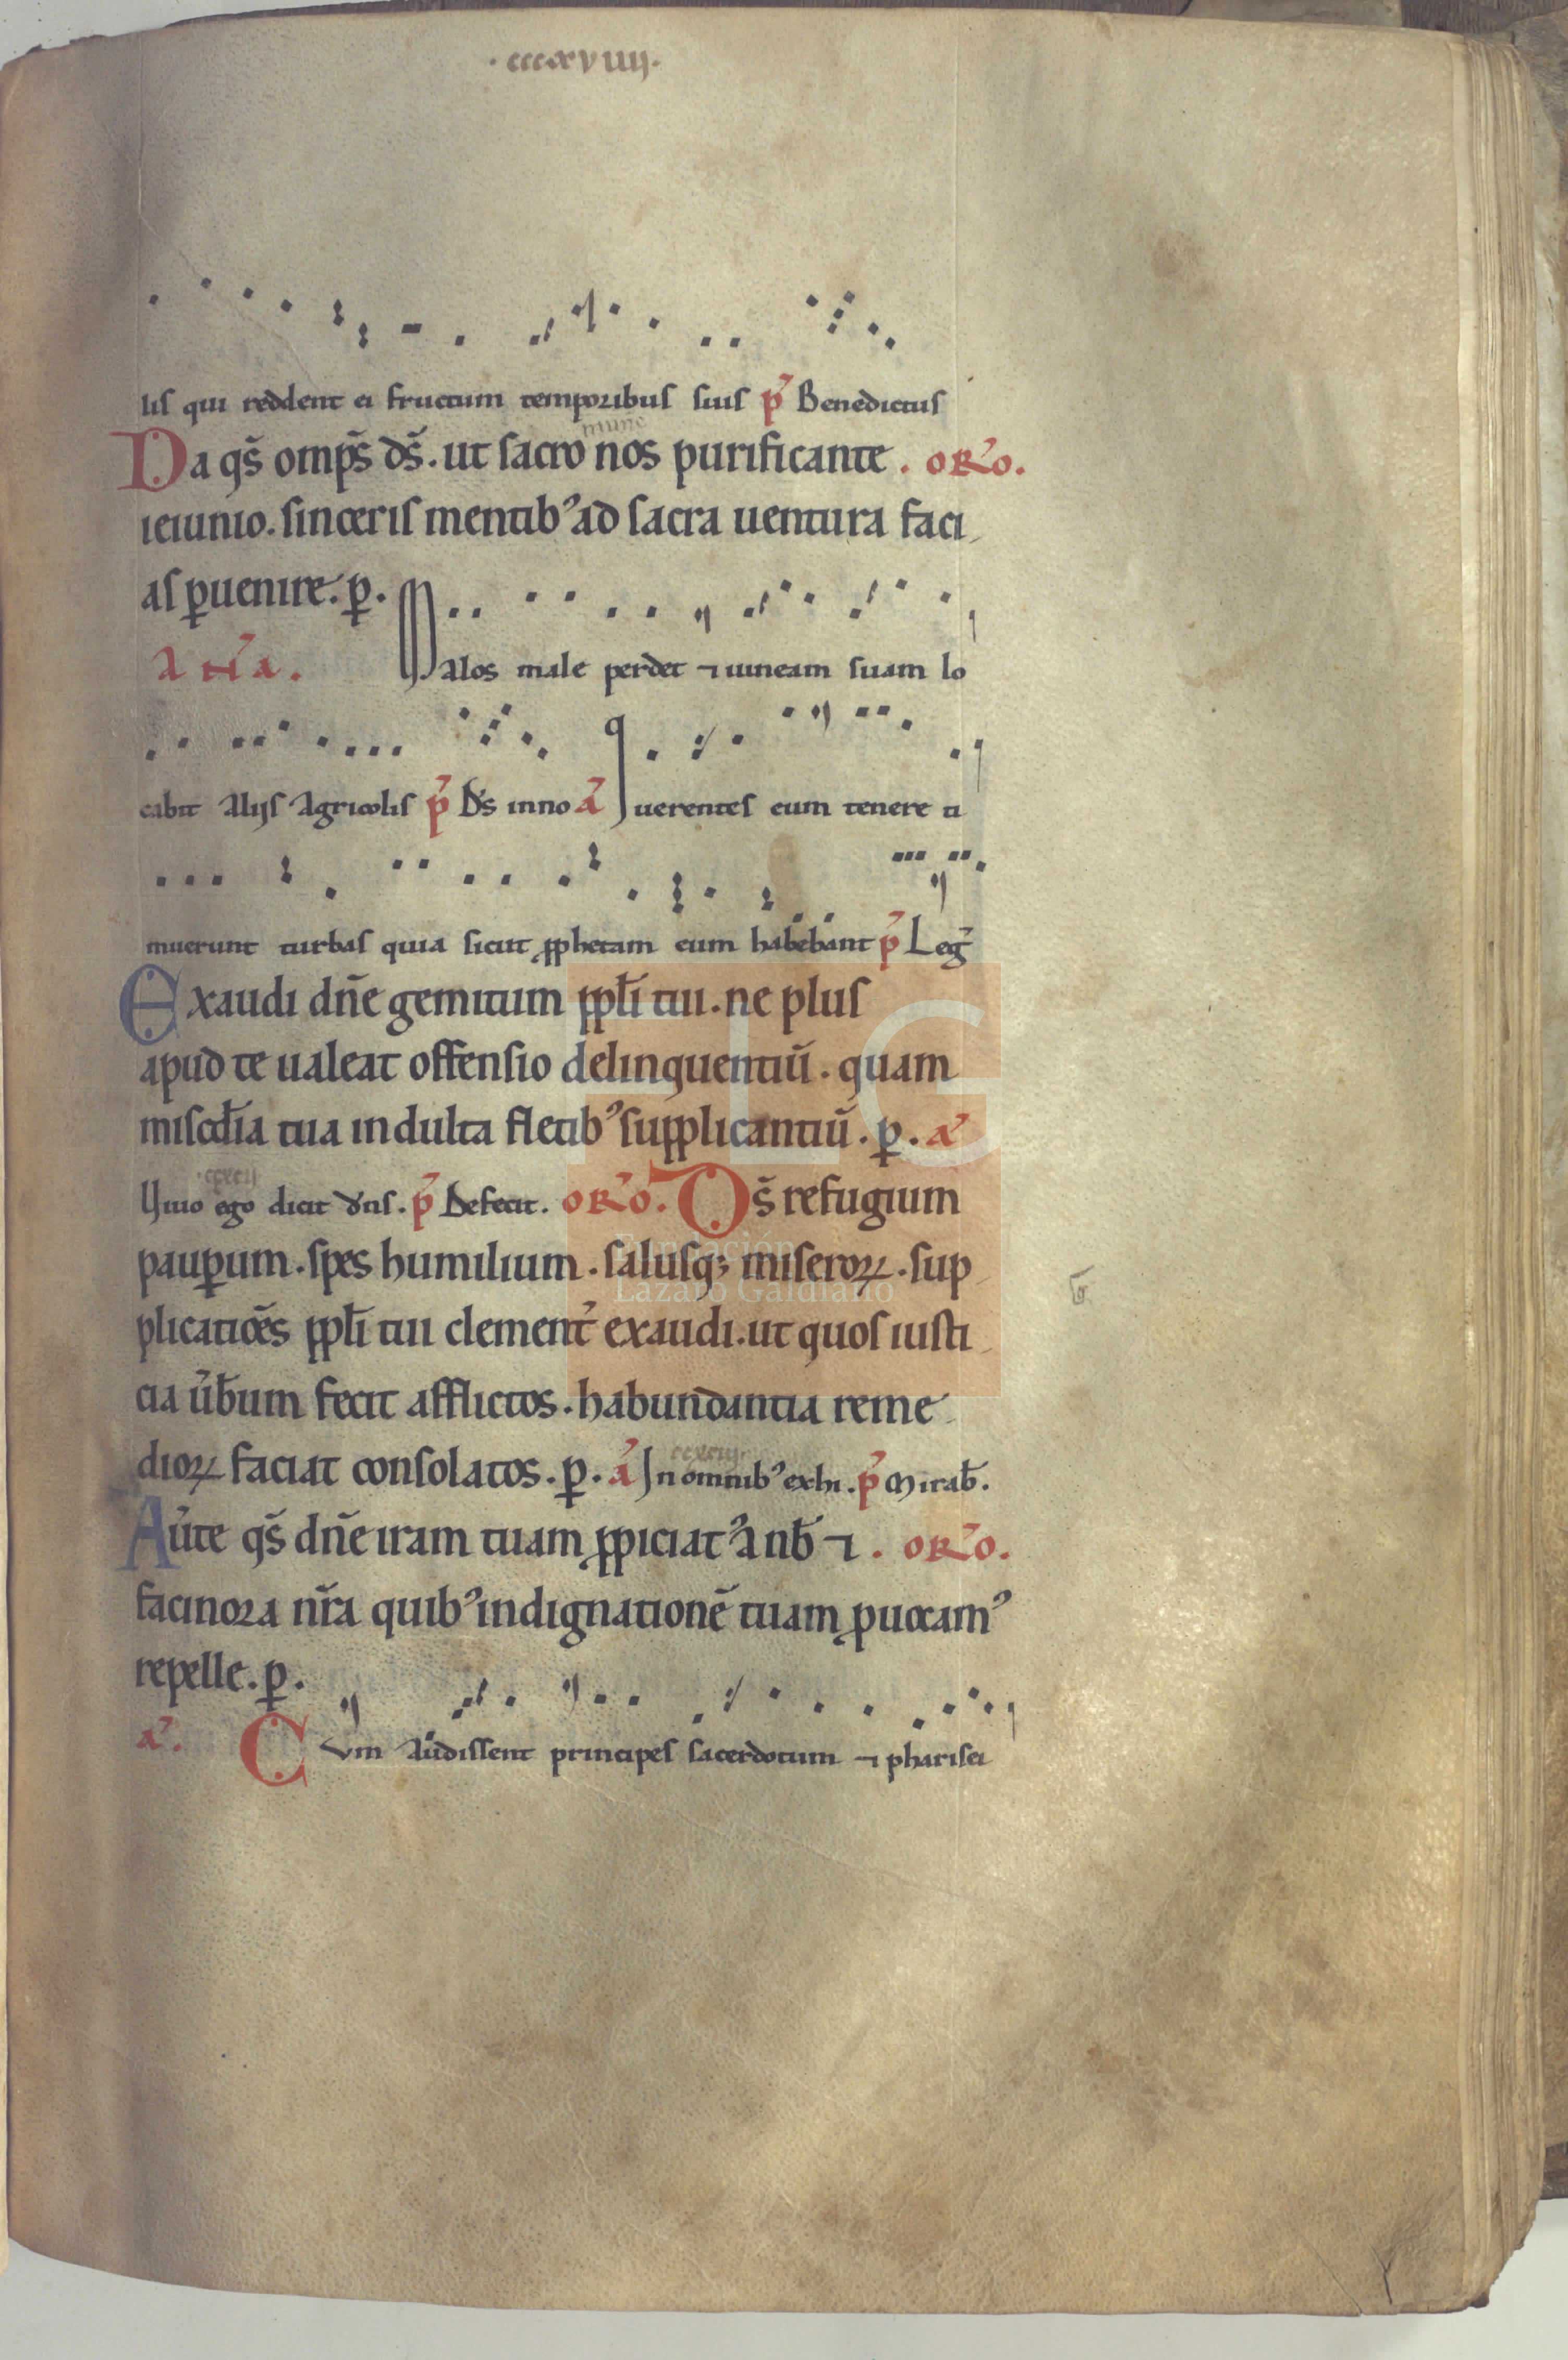 .cccxviiij.
lis qui reddent ei fructum temporibus suis p̄ Benedictus
Da qs̄ omps̄ ds̄. ut sacro nos purificante. oR̄o.
ieiunio. sinceris mentibꝰ ad sacra uentura faci
as ꝑuenire. p̱.
AÑa. Malos male perdet ⁊ uineam suam lo
cabit Alijs Agricolis p̄ D̄s inno ā Querentes eum tenere ti
muerunt turbas quia sicut ꝓphetam eum habebant p̄ Leḡ
Exaudi dn̄e gemitum ppl̄i tui. ne plus
apud te ualeat offensio delinquentiū. quam
misc̄dia tua indulta fletibꝰ supplicantiū. p̱. ā
Uiuo ego dicit dn̄s. p̄ Defecit. oR̄o. Ds̄ refugium
pauꝑum. spes humilium. salusq; miseroꝝ. sup
plicatiōēs ppl̄i tui clement̄ exaudi. ut quos iusti
cia ūb̄um fecit afflictos. habundantia reme
dioꝝ faciat consolatos. p̱. ā In omnibꝰ exhi. p̄ Mirab̄.
Aūte qs̄ dn̄e iram tuam ꝓpiciatꝰ a nb̄ ⁊. oR̄o.
facinora nr̄a quibꝰ indignationē tuam ꝓuocamꝰ
repelle. p̱.
ā. Cum Audissent principes sacerdotum ⁊ pharisei
FLG
Fundación
Lázaro Galdiano